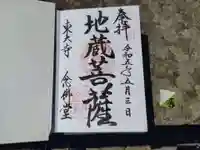 奉拝
令和五年五月三日
地蔵菩薩
東大寺 念佛堂